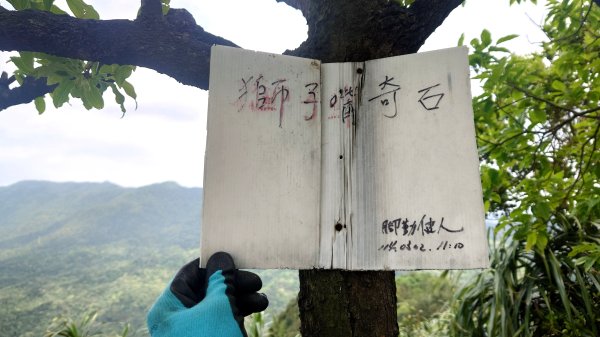 獅子嘴奇石
腳勤健人
114.03.02. 11:10